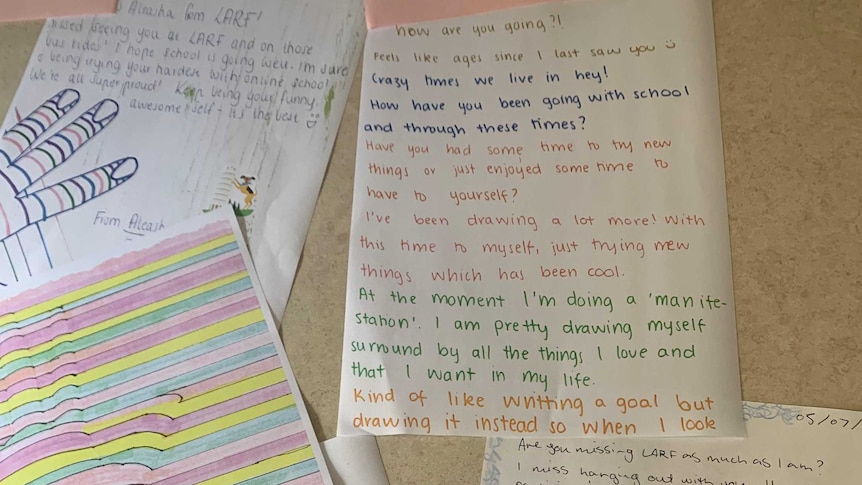 Aleasha from LARF!
seeing you at LARF and on those
bus rides! I hope school is going well. I'm sure
being trying your hardest with online school!
We're all super proud! Keep being your funny,
awesome self - it's the best
From Aleash
how are you going?!
Feels like ages since I last saw you
Crazy times we live in hey!
How have you been going with school
and through these times?
Have you had some time to try new
things or just enjoyed some time to
have to yourself?
I've been drawing a lot more! With
this time to myself, just trying new
things which has been cool.
At the moment I'm doing a 'man ite-
station'. I am pretty drawing myself
surround by all the things I love and
that I want in my life.
Kind of like writting a goal but
drawing it instead so when I look
05/07/
Are you missing LARF as much as I am?
I miss hanging out with